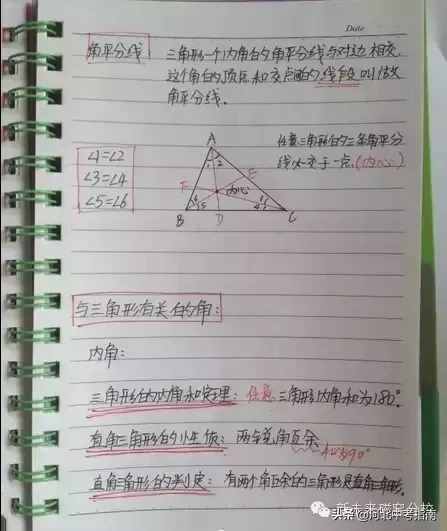 Date
角平分线
三角形一个内角的角平分线与对边相交
这个角的顶点和交点间的线段叫做
角平分线。
∠1=∠2
∠3=∠4
∠5=∠6
任意三角形的三条角平分
线交于一点.(内心)
A
1 2
F
E
内心
B
D
C
与三角形有关的角:
内角:
三角形的内角和定理: 任意三角形内角和为180°.
直角三角形的性质: 两锐角互余
和为90°
直角三角形的判定: 有两个角互余的三角形是直角三角形.
新未来磁窑分校
头条 @河北中考指南